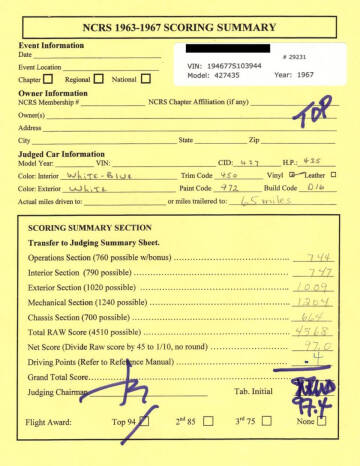 NCRS 1963-1967 SCORING SUMMARY
Event Information
Date
# 29231
Event Location
VIN: 194677S103944
Chapter Regional National
Model: 427435 Year: 1967
Owner Information
NCRS Membership # NCRS Chapter Affiliation (if any)
TOP
Owner(s)
Address
City State Zip
Judged Car Information
Model Year: VIN: CID: 427 H.P.: 435
Color: Interior WHITE-BLUE Trim Code 450 Vinyl Leather
Color: Exterior WHITE Paint Code 972 Build Code D16
Actual miles driven to: or miles trailered to: 65 miles
SCORING SUMMARY SECTION
Transfer to Judging Summary Sheet.
Operations Section (760 possible w/bonus) 744
Interior Section (790 possible) 747
Exterior Section (1020 possible) 1009
Mechanical Section (1240 possible) 1204
Chassis Section (700 possible) 664
Total RAW Score (4510 possible) 4368
Net Score (Divide Raw score by 45 to 1/10, no round) 97.0
Driving Points (Refer to Reference Manual) .4
Grand Total Score
Judging Chairman Tab. Initial 97.4
Flight Award: Top 94 2nd 85 3rd 75 None